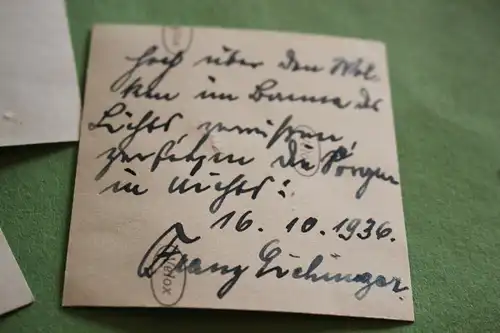 Hoch über den Wol-
ken im Banne des
Lichts, zerrissen,
zerfetzen die Sorgen
in Nichts!
16. 10. 1936.
Franz Eichinger.